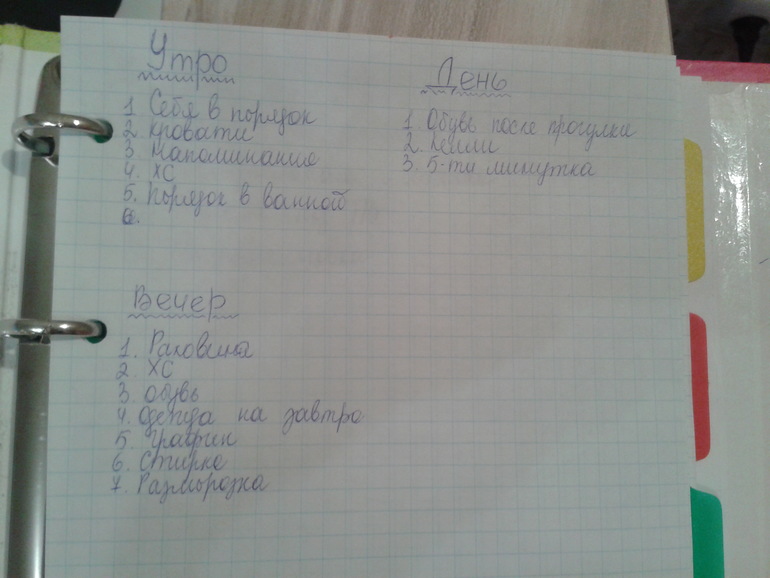 Утро
1 Себя в порядок
2 кровати
3 напоминание
4. ХС
5. Порядок в ванной
6.
День
1. Обувь после прогулки
2.
3. 5-ти минутка
Вечер
1. Раковина
2. ХС
3. Обувь
4. Одежда на завтра
5. Графин
6. Стирка
7. Разморозка